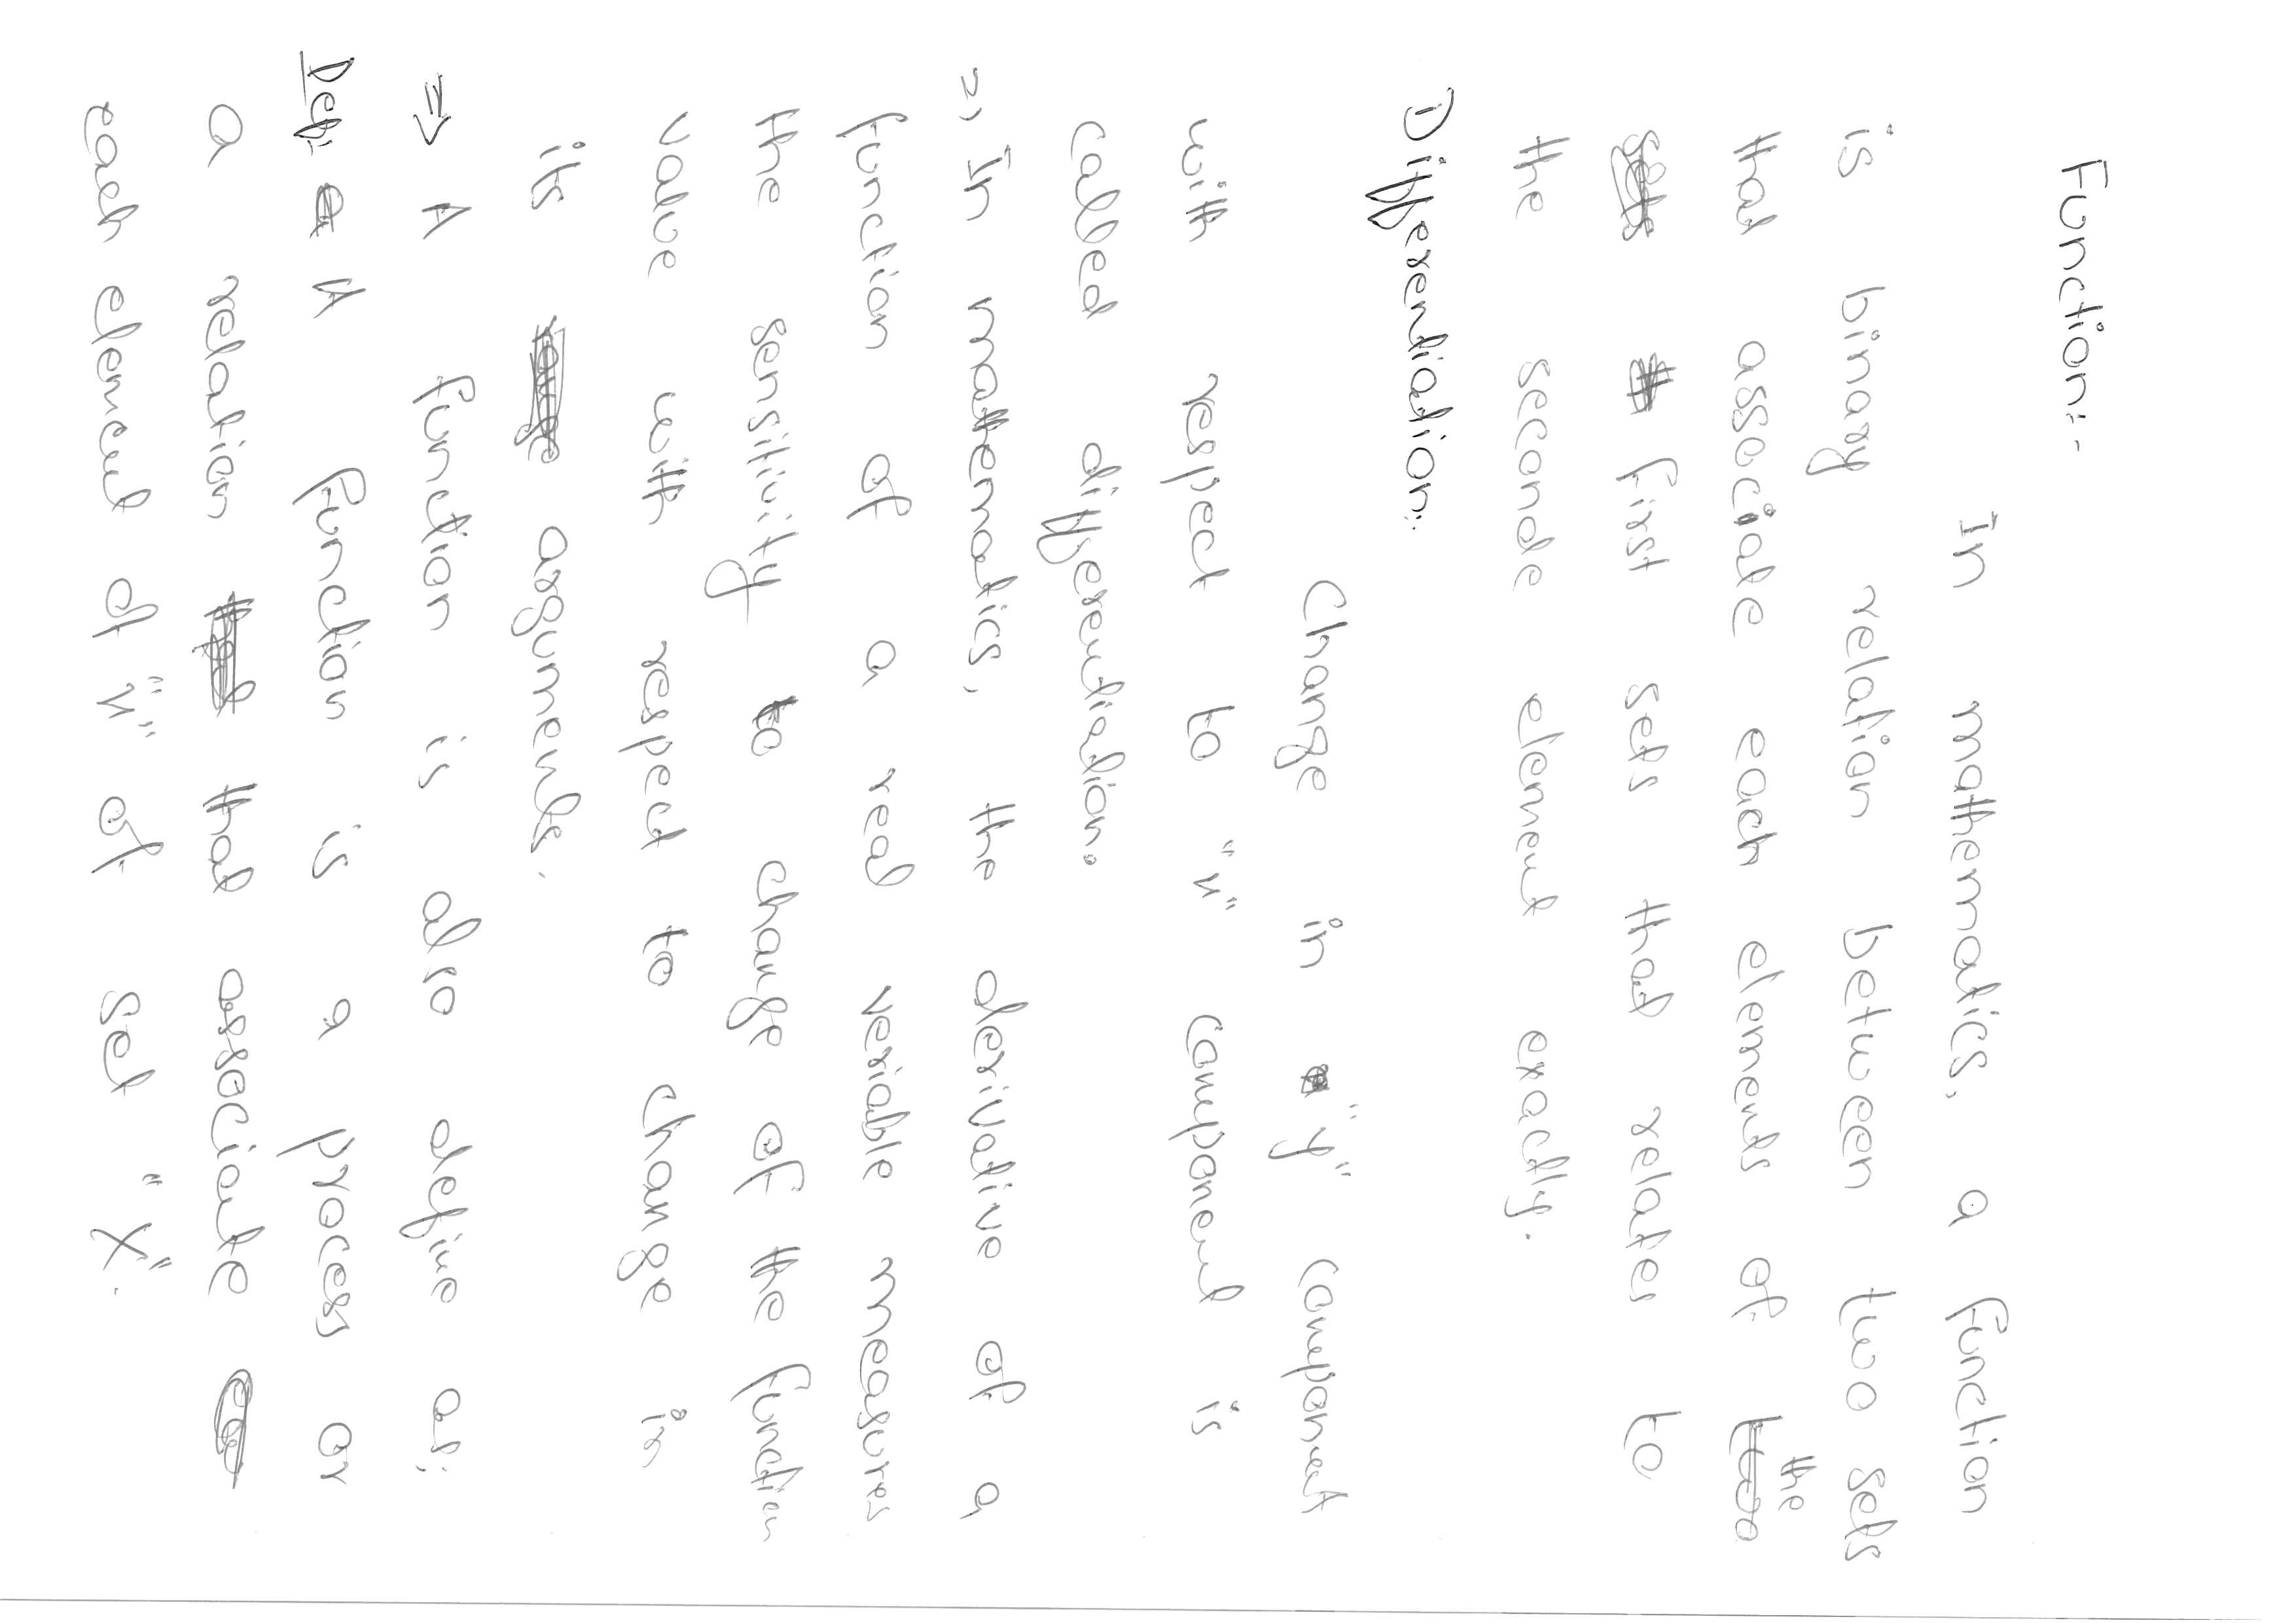 Function:-
In mathematics, a function
is binary relation between two sets
that associate each elements of the
first sets that relates to
the seconde element exactly.
Differentiation:
Change in "y" component
with respect to "x" component is
called differentiation.
=> In mathematics, the derivative of a
function of a real veriable measures
the sensitivity to change of the function
value with respect to change in
its arguments.
=> A function is also define as;
Def: A function is a process or
a relation that associate
each element of "x" of set "X".